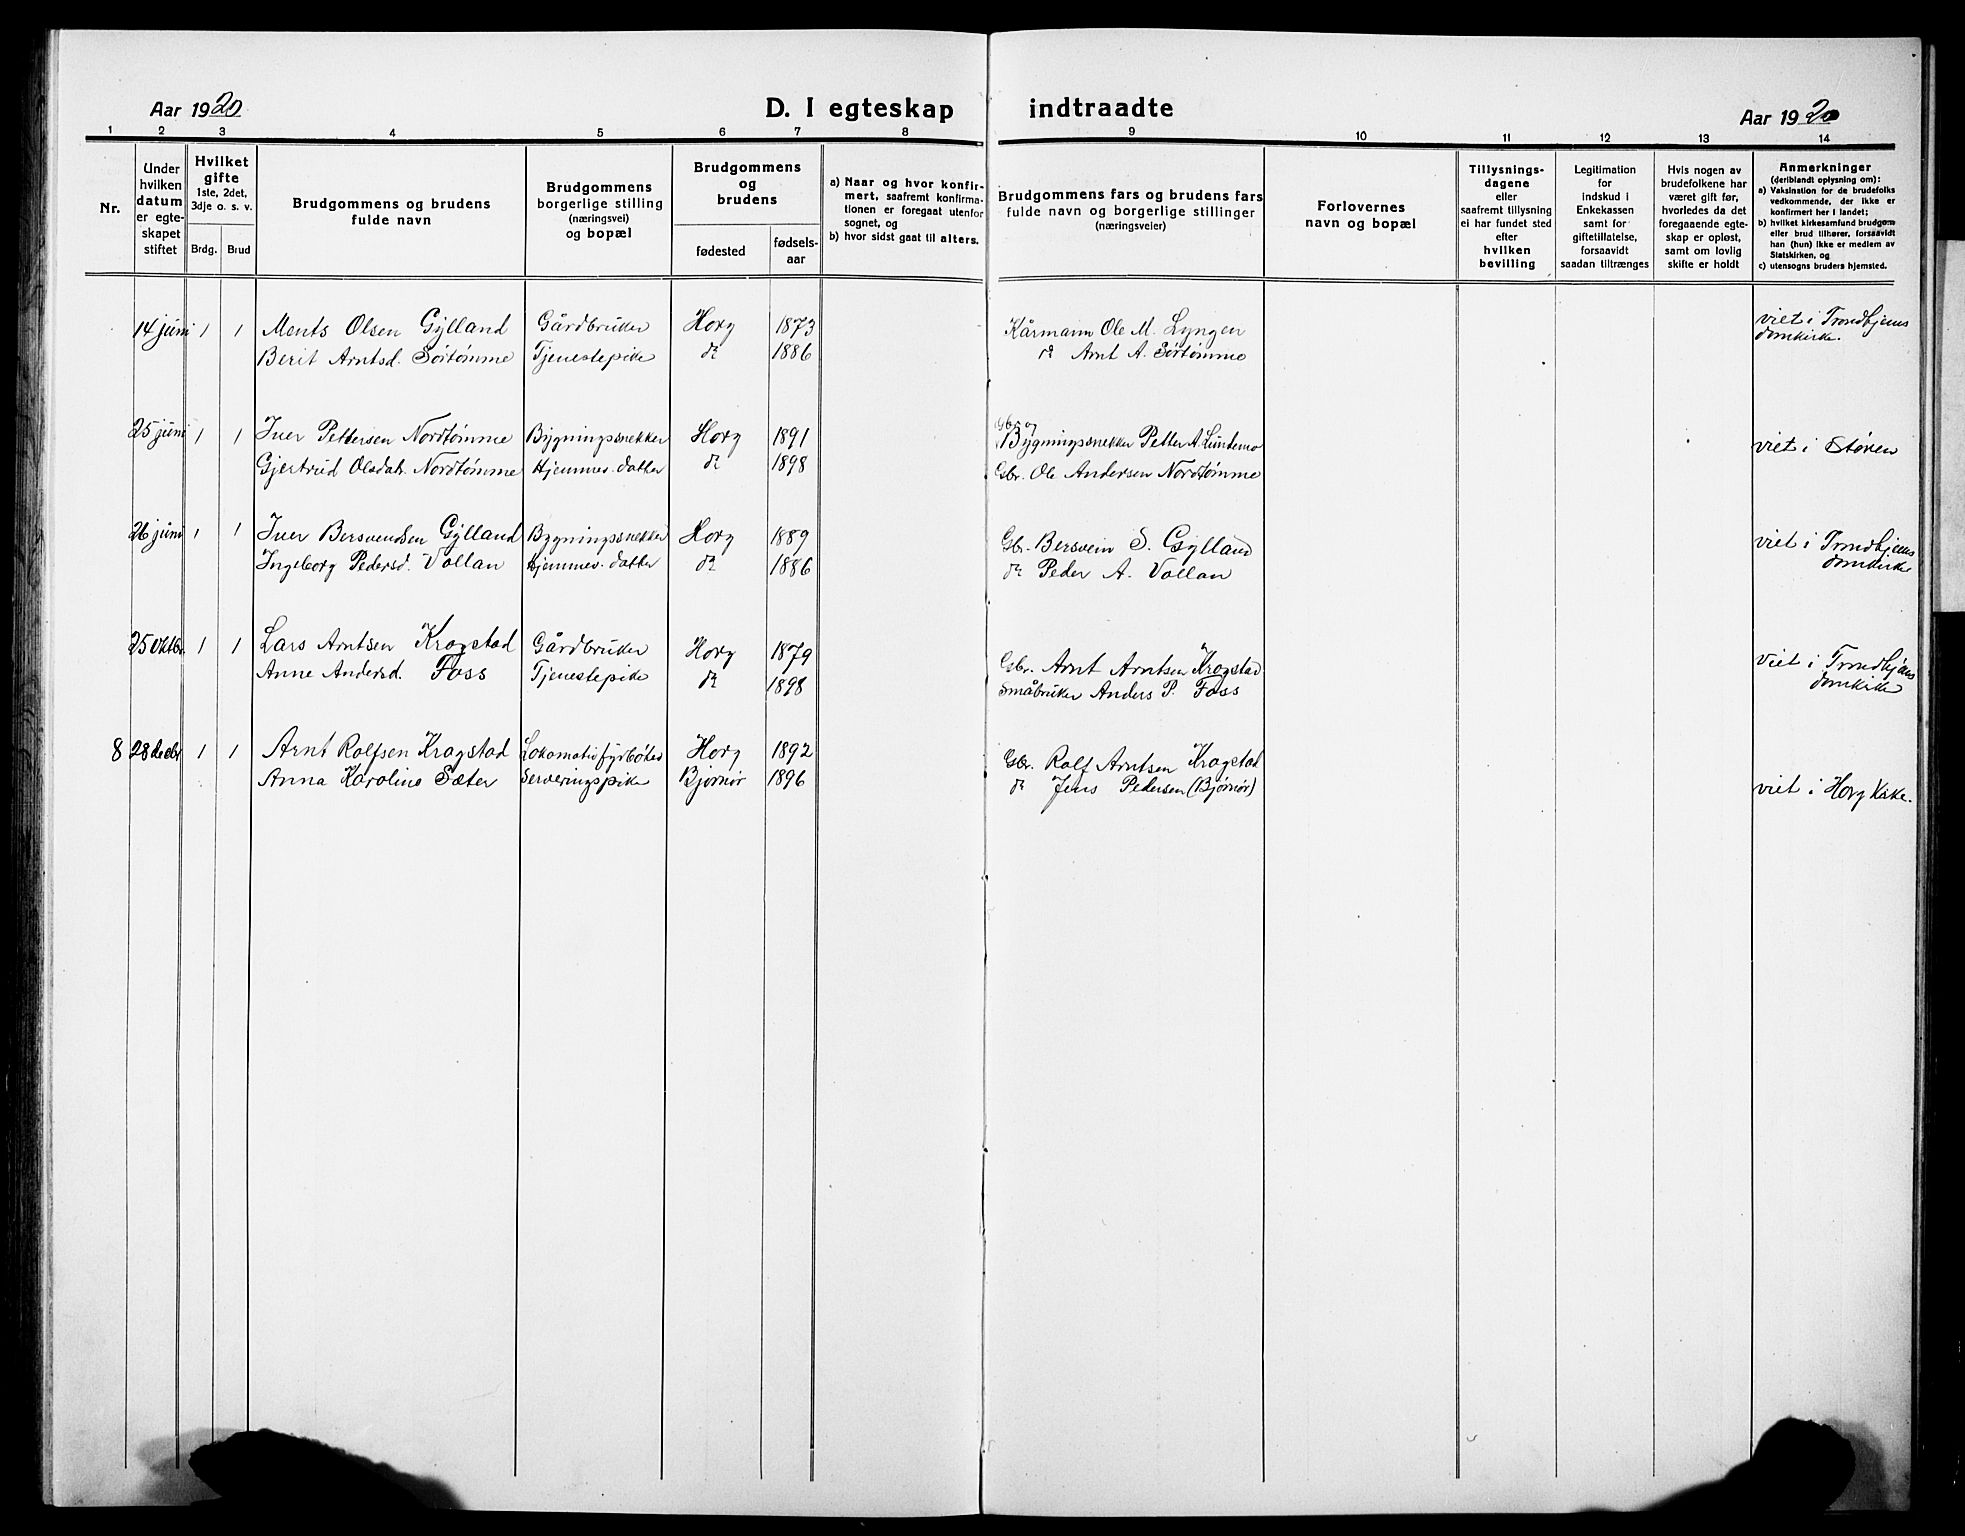 Aar 1920
D. I egteskap indtraadte
Aar 1920
1 2 3 4 5 6 7 8 9 10 11 12 13 14
Nr.
Under
hvilken
datum
er egte-
skapet
stiftet
Hvilket
gifte
1ste, 2det,
3dje o. s. v.
Brdg. Brud
Brudgommens og brudens
fulde navn
Brudgommens
borgerlige stilling
(næringsvei)
og bopæl
Brudgommens
og
brudens
fødested
fødsels-
aar
a) Naar og hvor konfir-
mert, saafremt konfirma-
tionen er foregaat utenfor
sognet, og
b) hvor sidst gaat til alters.
Brudgommens fars og brudens fars
fulde navn og borgerlige stillinger
(næringsveier)
Forlovernes
navn og bopæl
Tillysnings-
dagene
eller
saafremt tillysning
ei har fundet sted
efter
hvilken
bevilling
Legitimation
for
indskud i
Enkekassen
samt for
giftetillatelse,
forsaavidt
saadan tiltrænges
Hvis nogen av
brudefolkene har
været gift før,
hvorledes da det
foregaaende egte-
skap er opløst,
samt om lovlig
skifte er holdt
Anmerkninger
(deriblandt oplysning om):
a) Vaksination for de brudefolks
vedkommende, der ikke er
konfirmert her i landet;
b) hvilket kirkesamfund brudgom
eller brud tilhører, forsaavidt
han (hun) ikke er medlem av
Statskirken, og
c) utensogns bruders hjemsted.
14 juni 1 1 Ments Olsen Gylland Gårdbruker Horg 1873 Kårmann Ole M. Lyngen viet i Trondhjems
Berit Arntsd. Sørtømme Tjenestepike do 1886 do Arnt A. Sørtømme domkirke.
Gbr. og
25 juni 1 1 Iver Pettersen Nordtømme Bygningssnekker Horg 1891 Bygningssnekker Petter A. Luntemo
Gjertrud Olsdatr. Nordtømme Hjemmev. datter do 1898 Gbr. Ole Andersen Nordtømme viet i Støren
26 juni 1 1 Iver Bersvendsen Gylland Bygningssnekker Horg 1889 Gbr. Bersvein S. Gylland viet i Trondhjems
Ingeborg Pedersd. Vollan Hjemmev. datter do 1886 do Peder A. Vollan domkirke
25 oktbr. 1 1 Lars Arntsen Krogstad Gårdbruker Horg 1879 Gbr. Arnt Arntsen Krogstad viet i Trondhjems
Anne Andersd. Foss Tjenestepike do 1898 Småbruker Anders P. Foss domkirke
8 28 decbr 1 1 Arnt Rolfsen Krogstad Lokomotivfyrbøter Horg 1892 Gbr. Rolf Arntsen Krogstad
Anna Karoline Sæter Serveringspike Bjørnør 1896 do Jens Pedersen (Bjørnør) viet i Horg Kirke.